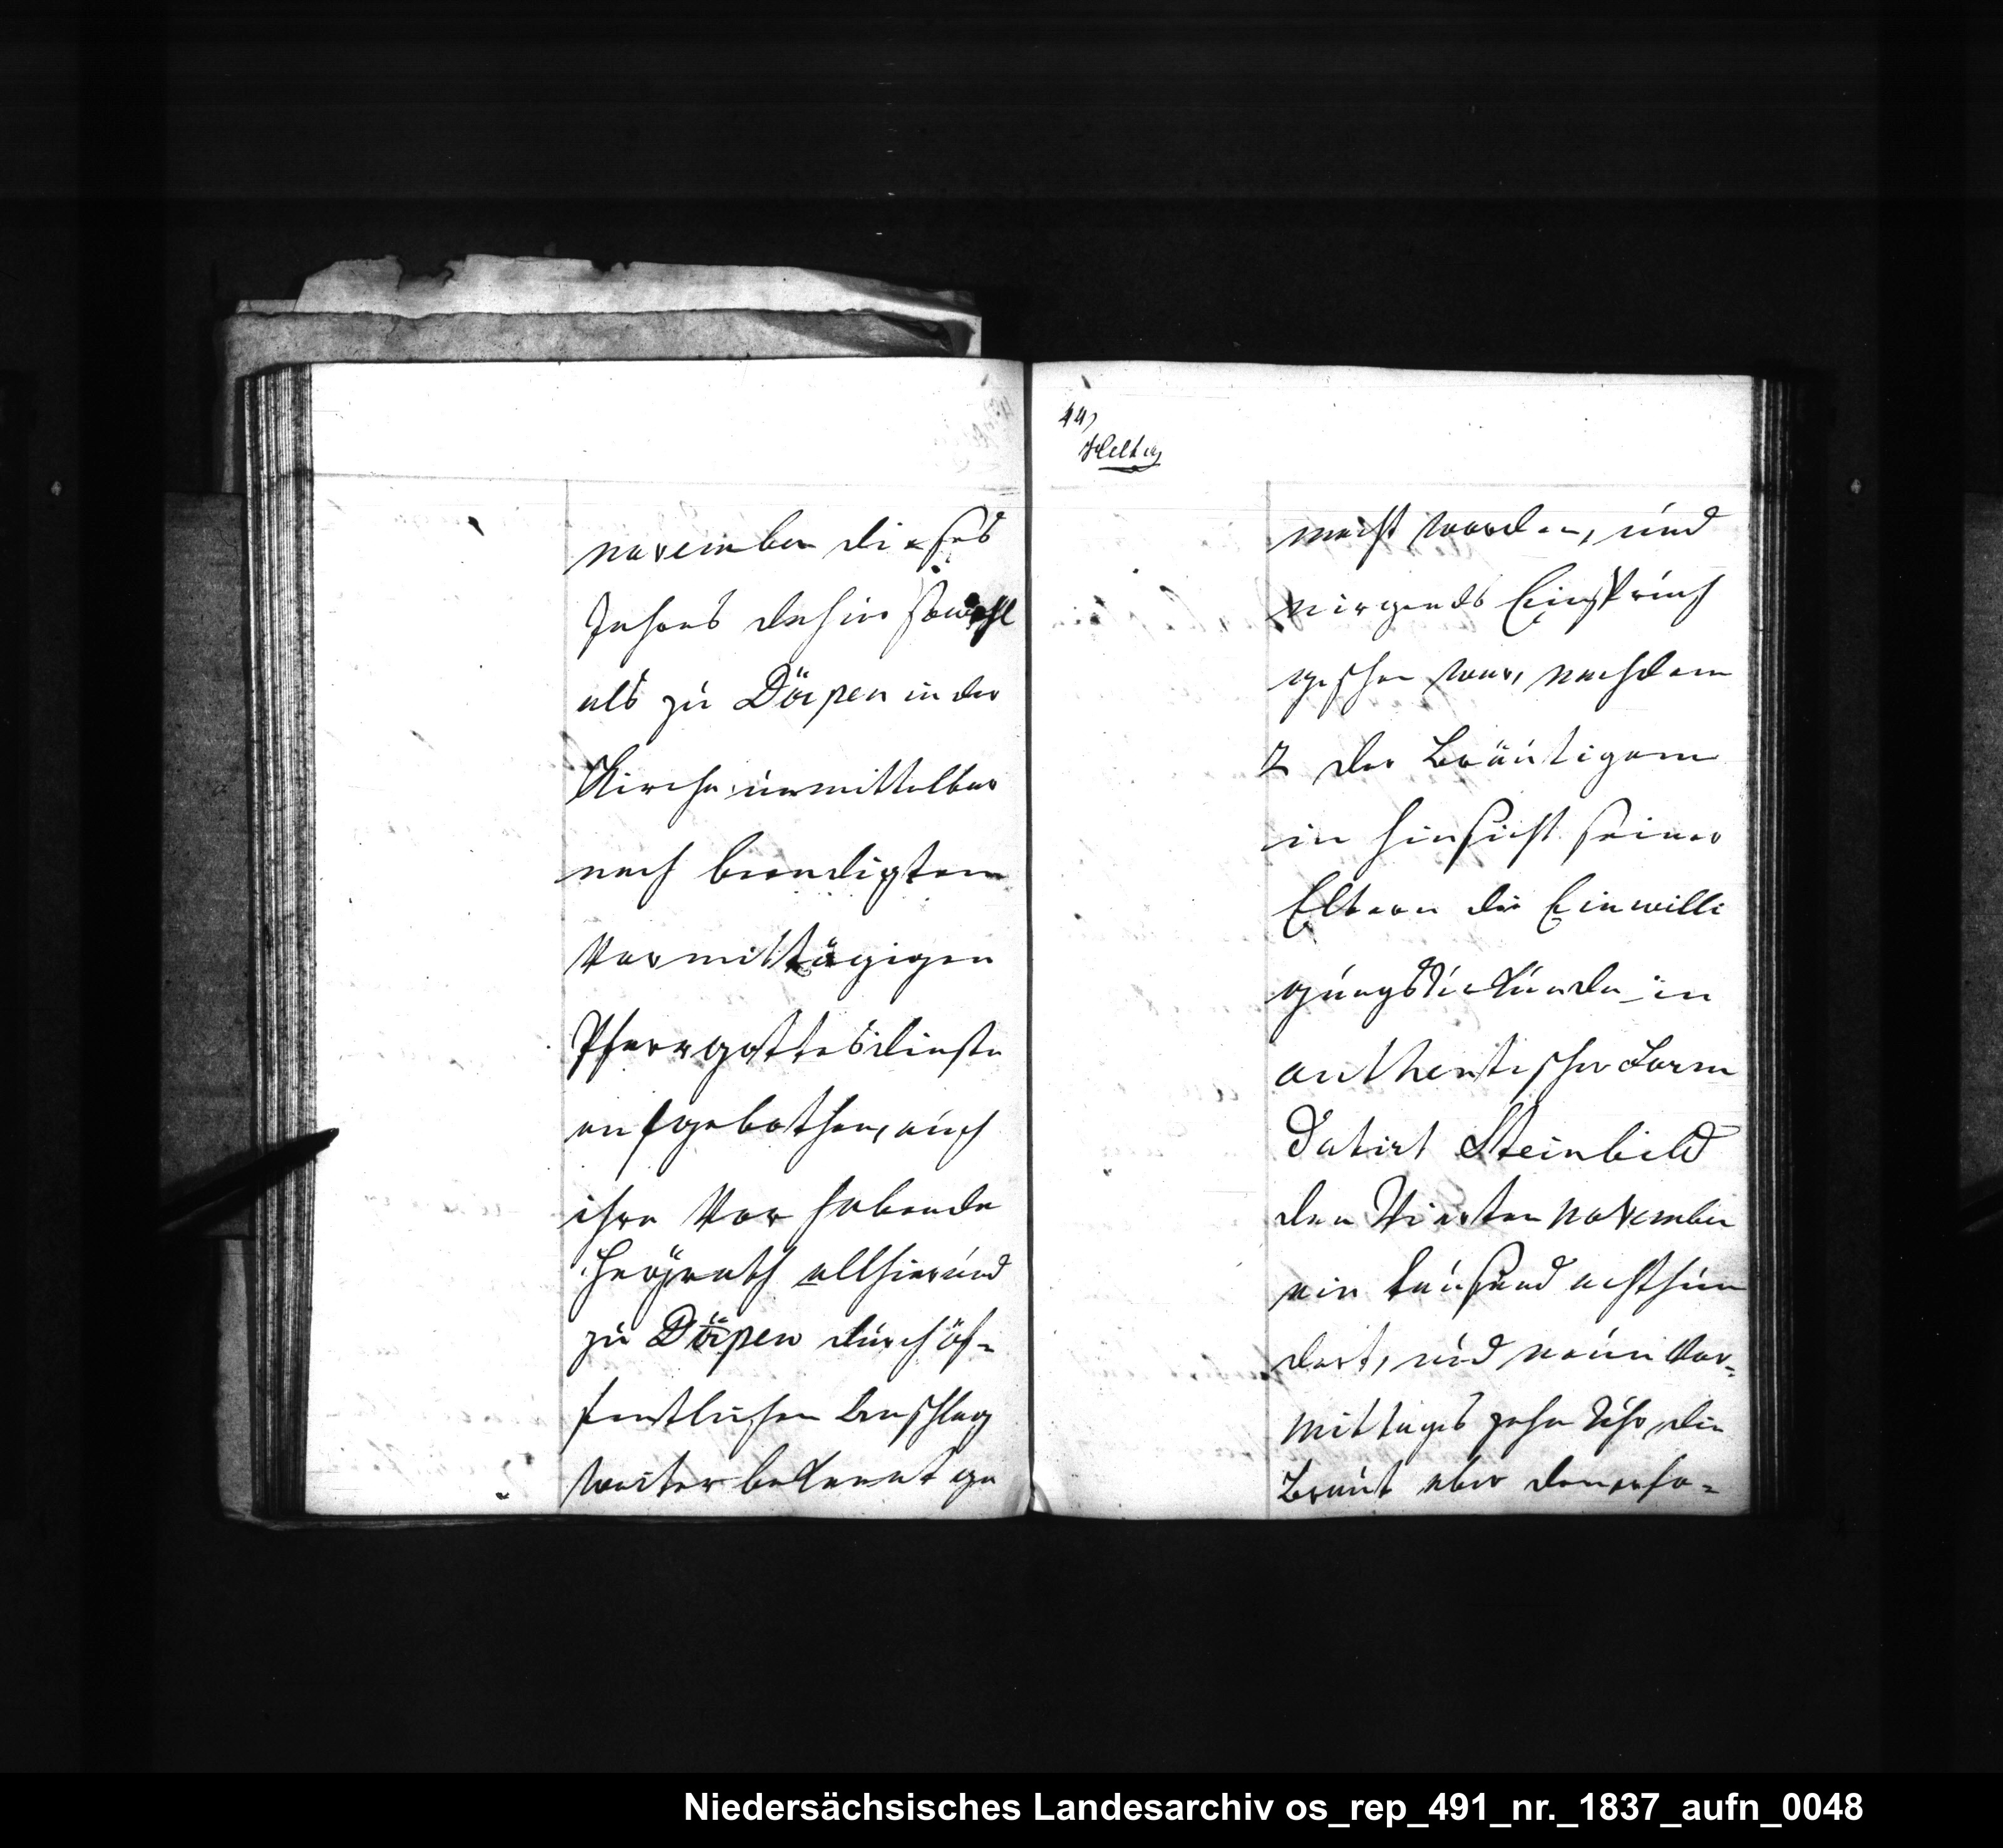 november dieses
Jahres dahier sowohl
als zu Dörpen in der
Kirche unmittelbar
nach beendigtem
Vormittägigen
Pfarrgottesdienste
aufgebothen, auch
ihre Vorhabende
Heÿrath allhier und
zu Dörpen durch öf=
fentlichen Anschlag
weiter bekannt ge
44,
macht worden, und
nirgends Einspruch
geschen war, nachdem
2 der Bräutigam
in hinsicht seiner
Eltern die Einwilli
gungs Urkunde in
authentischer Form
Datirt Steinbild
den Vierten november
ein tausend achthun
dert, und neun Vor=
mittages zehn Uhr, die
Braut aber den erfo=
Niedersächsisches Landesarchiv os_rep_491_nr._1837_aufn_0048